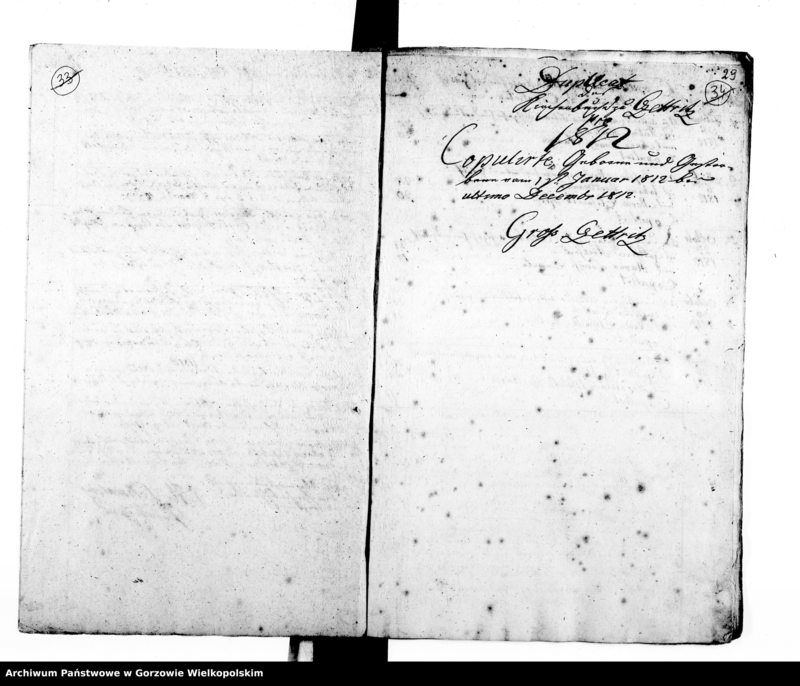 33
29
34
Duplicat
des
Kirchenbuches Zettritz
pro
1812
Copulirte, Geborne und Gestor-
bene vom 1 t. Januar 1812 bis
ultimo Decembr 1812.
Groß Zettritz
Archiwum Państwowe w Gorzowie Wielkopolskim